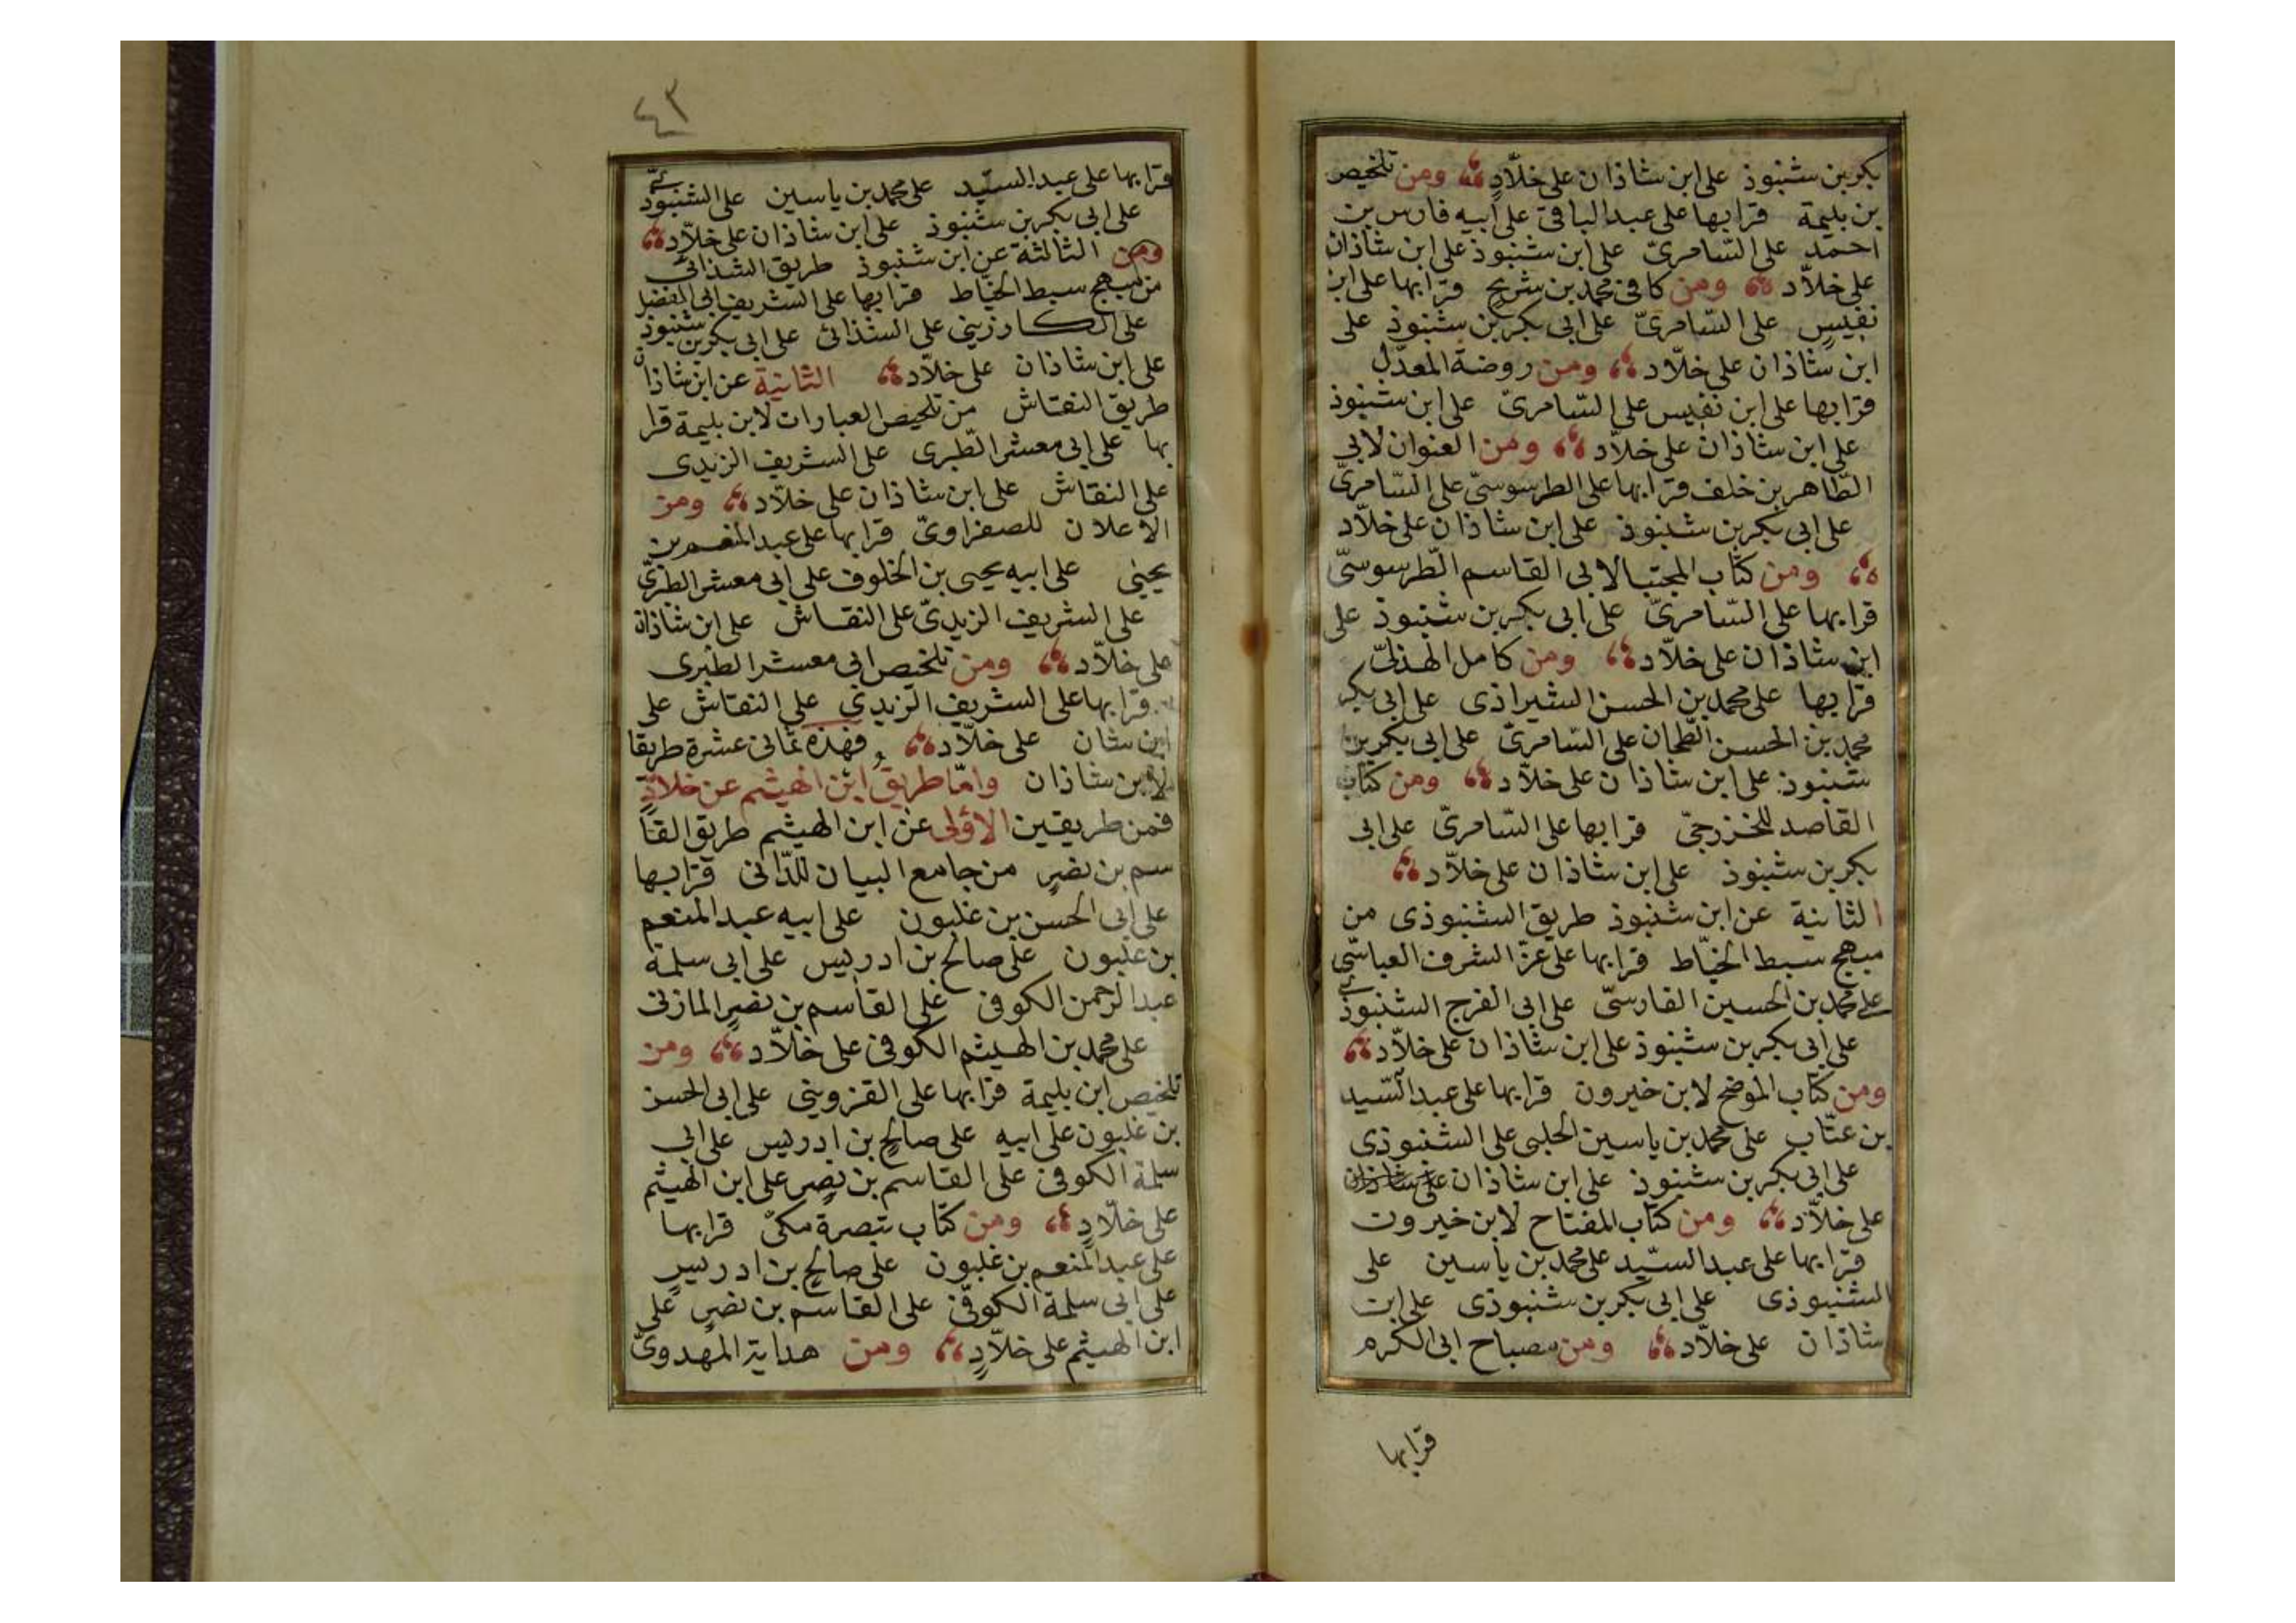 بكر بن شنبوذ على ابن شاذان على خلّادٍ ومن تلخيص
بن بليمة قرا بها على عبد الباقى على أبيه فارس بن
احمد على السّامرىّ على ابن شنبوذ على ابن شاذان
على خلّاد ومن كافى محمد بن شريح قرا بها على ابن
نفيسٍ على السّامرىّ على ابى بكر بن شنبوذ على
ابن شاذان على خلّاد ومن روضة المعدّل
قرا بها على ابن نفيس على السّامرىّ على ابن شنبوذ
على ابن شاذان على خلّاد ومن العنوان لابى
الطّاهر بن خلف قرا بها على الطرسوسىّ على السّامرىّ
على ابى بكر بن شنبوذ على ابن شاذان على خلّاد
ومن كتاب المجتبا لابى القاسم الطّرسوسىّ
قرا بها على السّامرىّ على ابى بكر بن شنبوذ على
ابن شاذان على خلّاد ومن كامل الهذلىّ
قرا بها على محمد بن الحسن الشيرازى على ابى بكر
محمد بن الحسن الطحان على السّامرىّ على ابى بكر بن
شنبوذ على ابن شاذان على خلّاد ومن كتاب
القاصد للخزرجىّ قرا بها على السّامرىّ على ابى
بكر بن شنبوذ على ابن شاذان على خلّاد
الثانية عن ابن شنبوذ طريق الشنبوذى من
مبهج سبط الخيّاط قرا بها على عزّ الشرف العباسّى
على محمد بن الحسين الفارسىّ على ابى الفرج الشنبوذى
على ابى بكر بن شنبوذ على ابن شاذان على خلّاد
ومن كتاب الموضح لابن خيرون قرا بها على عبد السّيد
بن عتّاب على محمد بن ياسين الحلبى على الشنبوذى
على ابى بكر بن شنبوذ على ابن شاذان على شاذان
على خلّاد ومن كتاب المفتاح لابن خيرون
قرا بها على عبد السيّد على محمد بن ياسين على
الشنبوذى على ابى بكر بن شنبوذى على ابن
شاذان على خلّاد ومن مصباح ابى الكرم
قرا بها
٤٣
قرا بها على عبد السيّد على محمد بن ياسين على الشنبوذى
على ابى بكر بن شنبوذ على ابن شاذان على خلّاد
ومن الثالثة عن ابن شنبوذ طريق الشذائى
من مبهج سبط الخيّاط قرا بها على الشريف ابى الفضل
على الكارزينى على الشذائى على ابى بكر بن شنبوذ
على ابن شاذان على خلّاد الثانية عن ابن شاذان
طريق النقاش من تلخيص العبارات لابن بليمة قرا
بها على ابى معشر الطّبرى على الشريف الزيدى
على النقاش على ابن شاذان على خلّاد ومن
الاعلان للصفراوىّ قرا بها على عبد المنعم بن
يحيى على ابيه يحيى بن الخلوف على ابى معشر الطبرىّ
على الشريف الزيدىّ على النقاش على ابن شاذان
على خلّاد ومن تلخيص ابى معشر الطبرى
قرا بها على الشريف الزيدى على النقاش على
ابن شان على خلّاد فهذه ثمانى عشرة طريقا
لابن شاذان وامّا طريق ابن الهيثم عن خلّادٍ
فمن طريقين الاولى عن ابن الهيثم طريق القا
سم بن نصيرٍ من جامع البيان للدّانى قرا بها
على ابى الحسن بن غلبون على ابيه عبد المنعم
بن غلبون على صالح بن ادريس على ابى سلمة
عبد الرحمن الكوفى على القاسم بن نصيرٍ المازنى
على محمد بن الهيثم الكوفى على خلّاد ومن
تلخيص ابن بليمة قرا بها على القزوينى على ابى الحسن
بن غلبون على ابيه على صالح بن ادريس على ابى
سلمة الكوفى على القاسم بن نصيرٍ على ابن الهيثم
على خلّادٍ ومن كتاب تبصرة مكىّ قرا بها
على عبد المنعم بن غلبون على صالح بن ادريسٍ
على ابى سلمة الكوفّى على القاسم بن نصيرٍ على
ابن الهيثم على خلّادٍ ومن هداية المهدوىّ